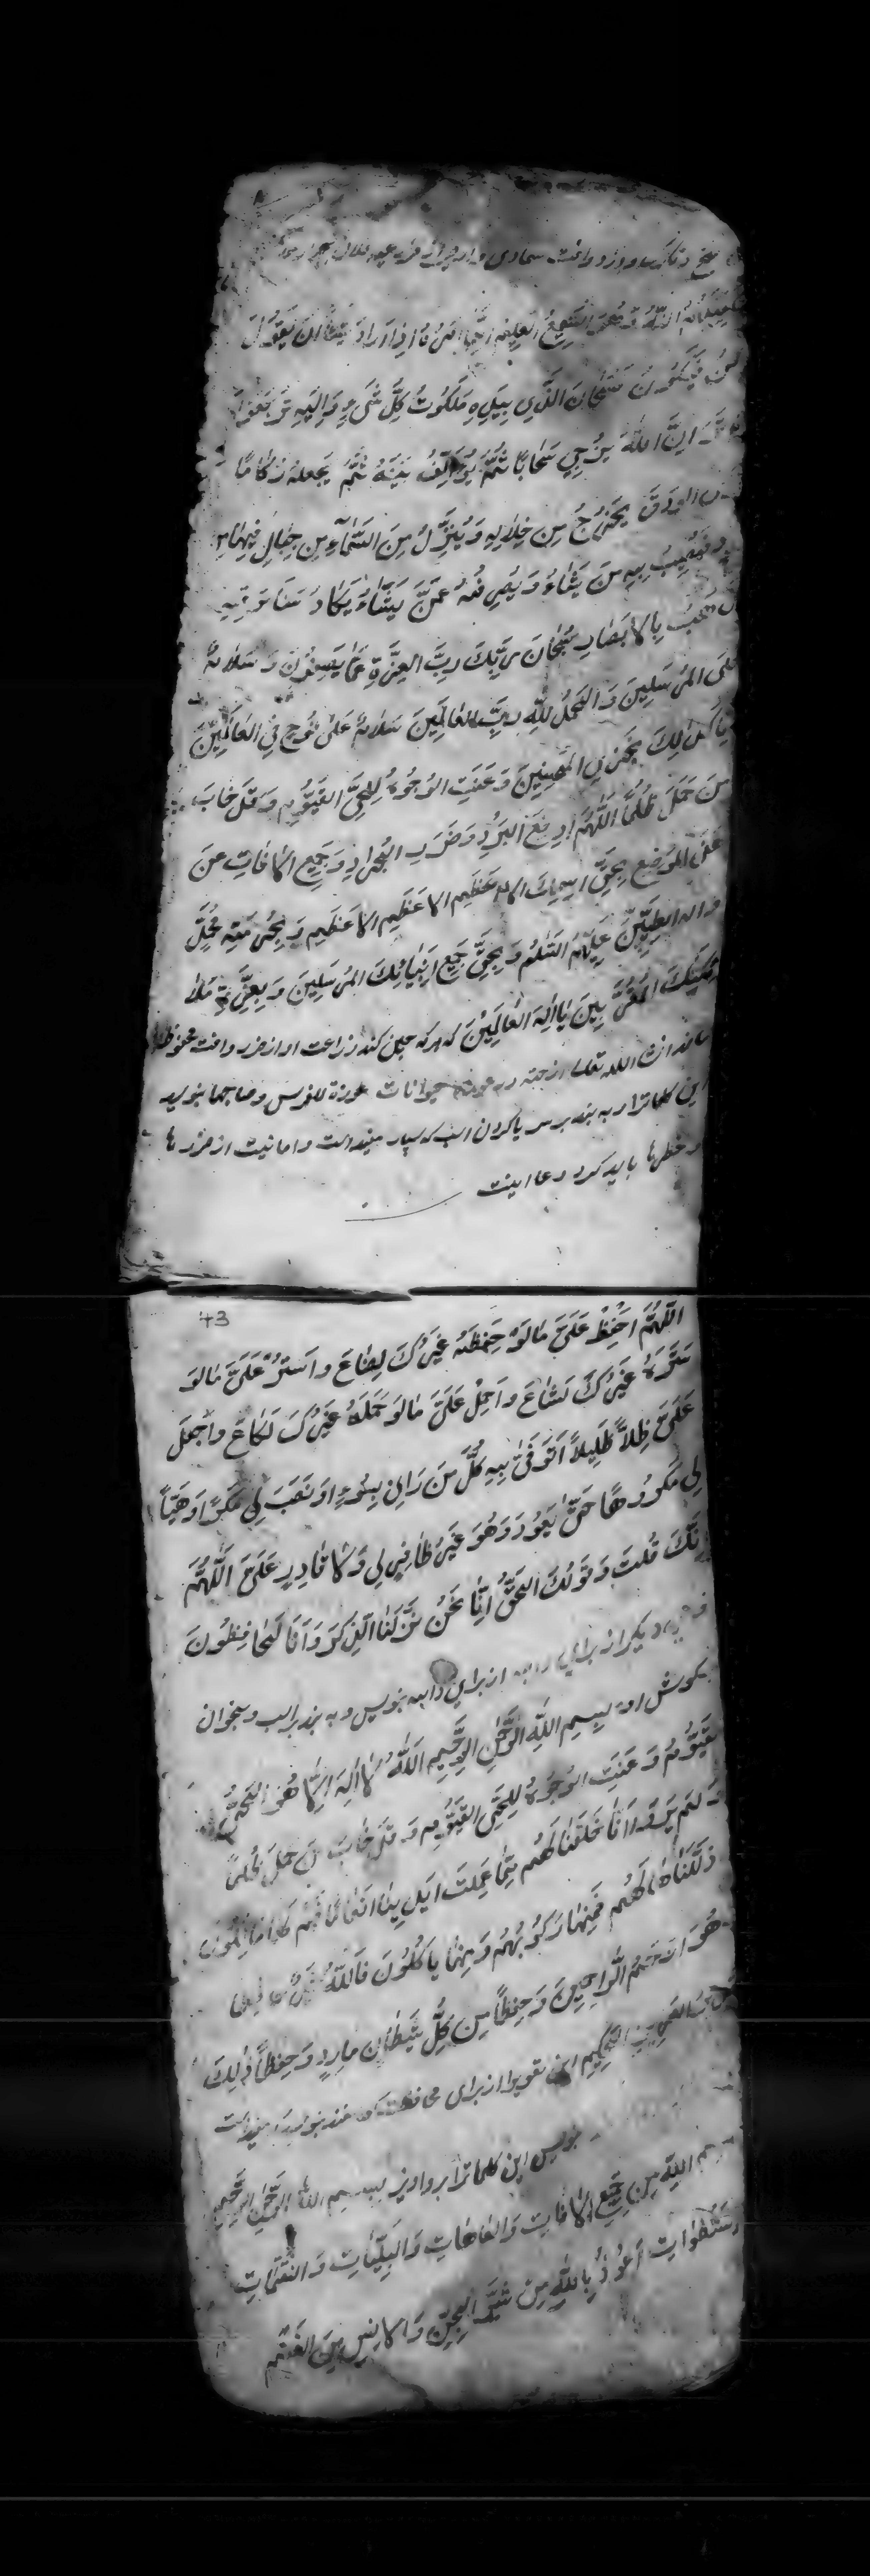 فسيكفيكهم الله و هو السميع العليم انما امره اذا اراد شيئا ان يقول
كن فيكون فسبحان الذي بيده ملكوت كل شيء و اليه ترجعون
ان الله يزجي سحابا ثم يؤلف بينه ثم يجعله ركاما
الودق يخرج من خلاله و ينزل من السماء من جبال فيها من
فيصيب به من يشاء و يصرفه عمن يشاء يكاد سنا برقه
يذهب بالابصار سبحان ربك رب العزة عما يصفون و سلام
على المرسلين و الحمد لله رب العالمين سلام على نوح في العالمين
انا كذلك نجزي المحسنين و عنت الوجوه للحي القيوم و قد خاب
من حمل ظلما اللهم ادفع البرد و ضرب الجراد و جميع الافات عن
على الموضع بحق اسمك الاعظم الاعظم الاعظم و بحرمة محمد
و اله الطيبين عليهم السلم و بحق جميع انبيائك المرسلين و بعزة ملا
ئكتك المقربين يا اله العالمين كه هركه چنين كند زراعت او از ضرر و افت محفوظ
ماند انشا الله تعالى حيوانات عوذة للفرس و صاحبها بنويسد
اين كلماترا و به بندد بر سر يا كردن اسب كه بسيار مفيد است و امانيت از ضررها
و خطرها بايد كرد دعا اينست
43
اللهم احفظ على ما لو حفظه غيرك لضاع و استر على ما لو
ستره غيرك لشاع و احمل على ما لو حمله غيرك لكاع و اجعل
على ظلا ظليلا اتوقى به كل من رانى بسوء او نصب لي مكرا او هيا
لي مكروها حتى يعود و هو غير ظافر لي و لا قادر على اللهم
انك قلت و قولك الحق انا نحن نزلنا الذكر و انا له لحافظون
ديكر از براي دابه بنويس و به بند بر اسب و بخوان
بكوش او بسم الله الرحمن الرحيم الله لا اله الا هو الحي
القيوم و عنت الوجوه للحي القيوم و قد خاب من حمل ظلما
او لم يروا انا خلقنا لهم مما عملت ايدينا انعاما فهم لها مالكون
و ذللناها لهم فمنها ركوبهم و منها ياكلون فالله خير حافظا
و هو ارحم الراحمين و حفظا من كل شيطان مارد و حفظا ذلك
تقدير العزيز الحكيم از براى محافظت
بنويس اين كلماترا بسم الله الرحمن الرحيم
بسم الله من جميع الافات و العاهات و البليات و النقمات
اعوذ بالله من شر الجن و الانس